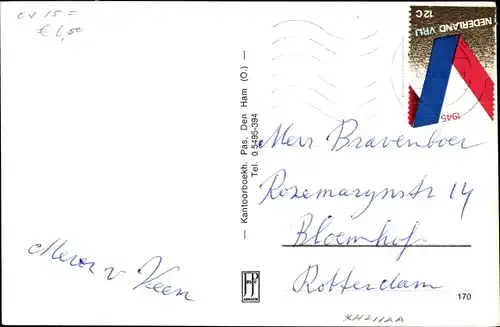 CV 15 =
€ 6,50
NEDERLAND VRIJ
12 c
1945
— Kantoorboekh. Pas, Den Ham (O.) —
Tel. 0 5495-394
Mevr Bravenboer
Rozemarynstr 14
Bloemhof
Rotterdam
Mevr v Veen
170
XH211AA